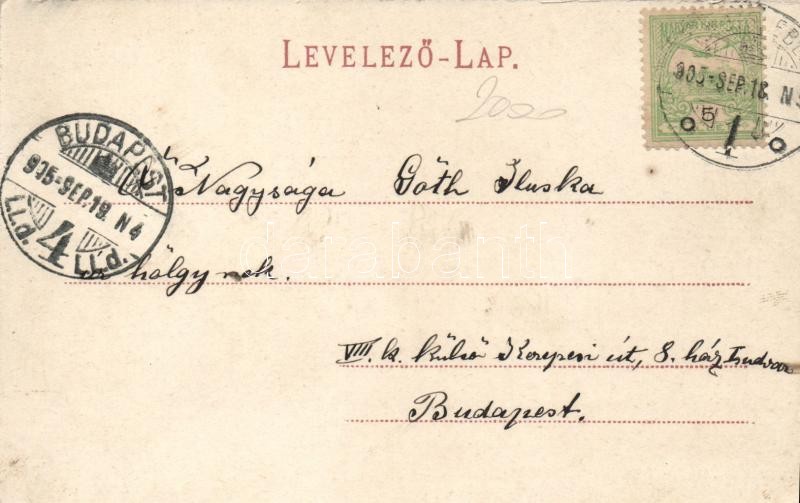 LEVELEZŐ-LAP.
MAGYAR KIR. POSTA
5
905-SEP.18. N5
1
2000
BUDAPEST
905-SEP.19. N4
4
I.I.P. I.I.P.
Ő Nagysága Góth Iluska
úr hölgynek.
VIII. k. külső Kerepesi út, 8. ház I udvar
Budapest.
darabanth